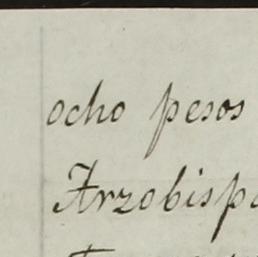 ocho pesos
Arzobispa